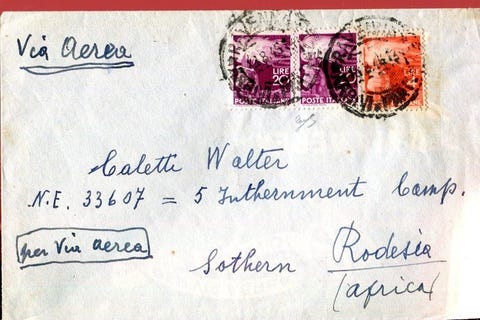 Via Aerea
LIRE 20
LIRE
LIRE
POSTE ITALIANE
POSTE ITALI
Caletti Walter
N.E. 33607 = 5 Inthernment Camp.
per Via aerea
Sothern Rodesia
(africa)